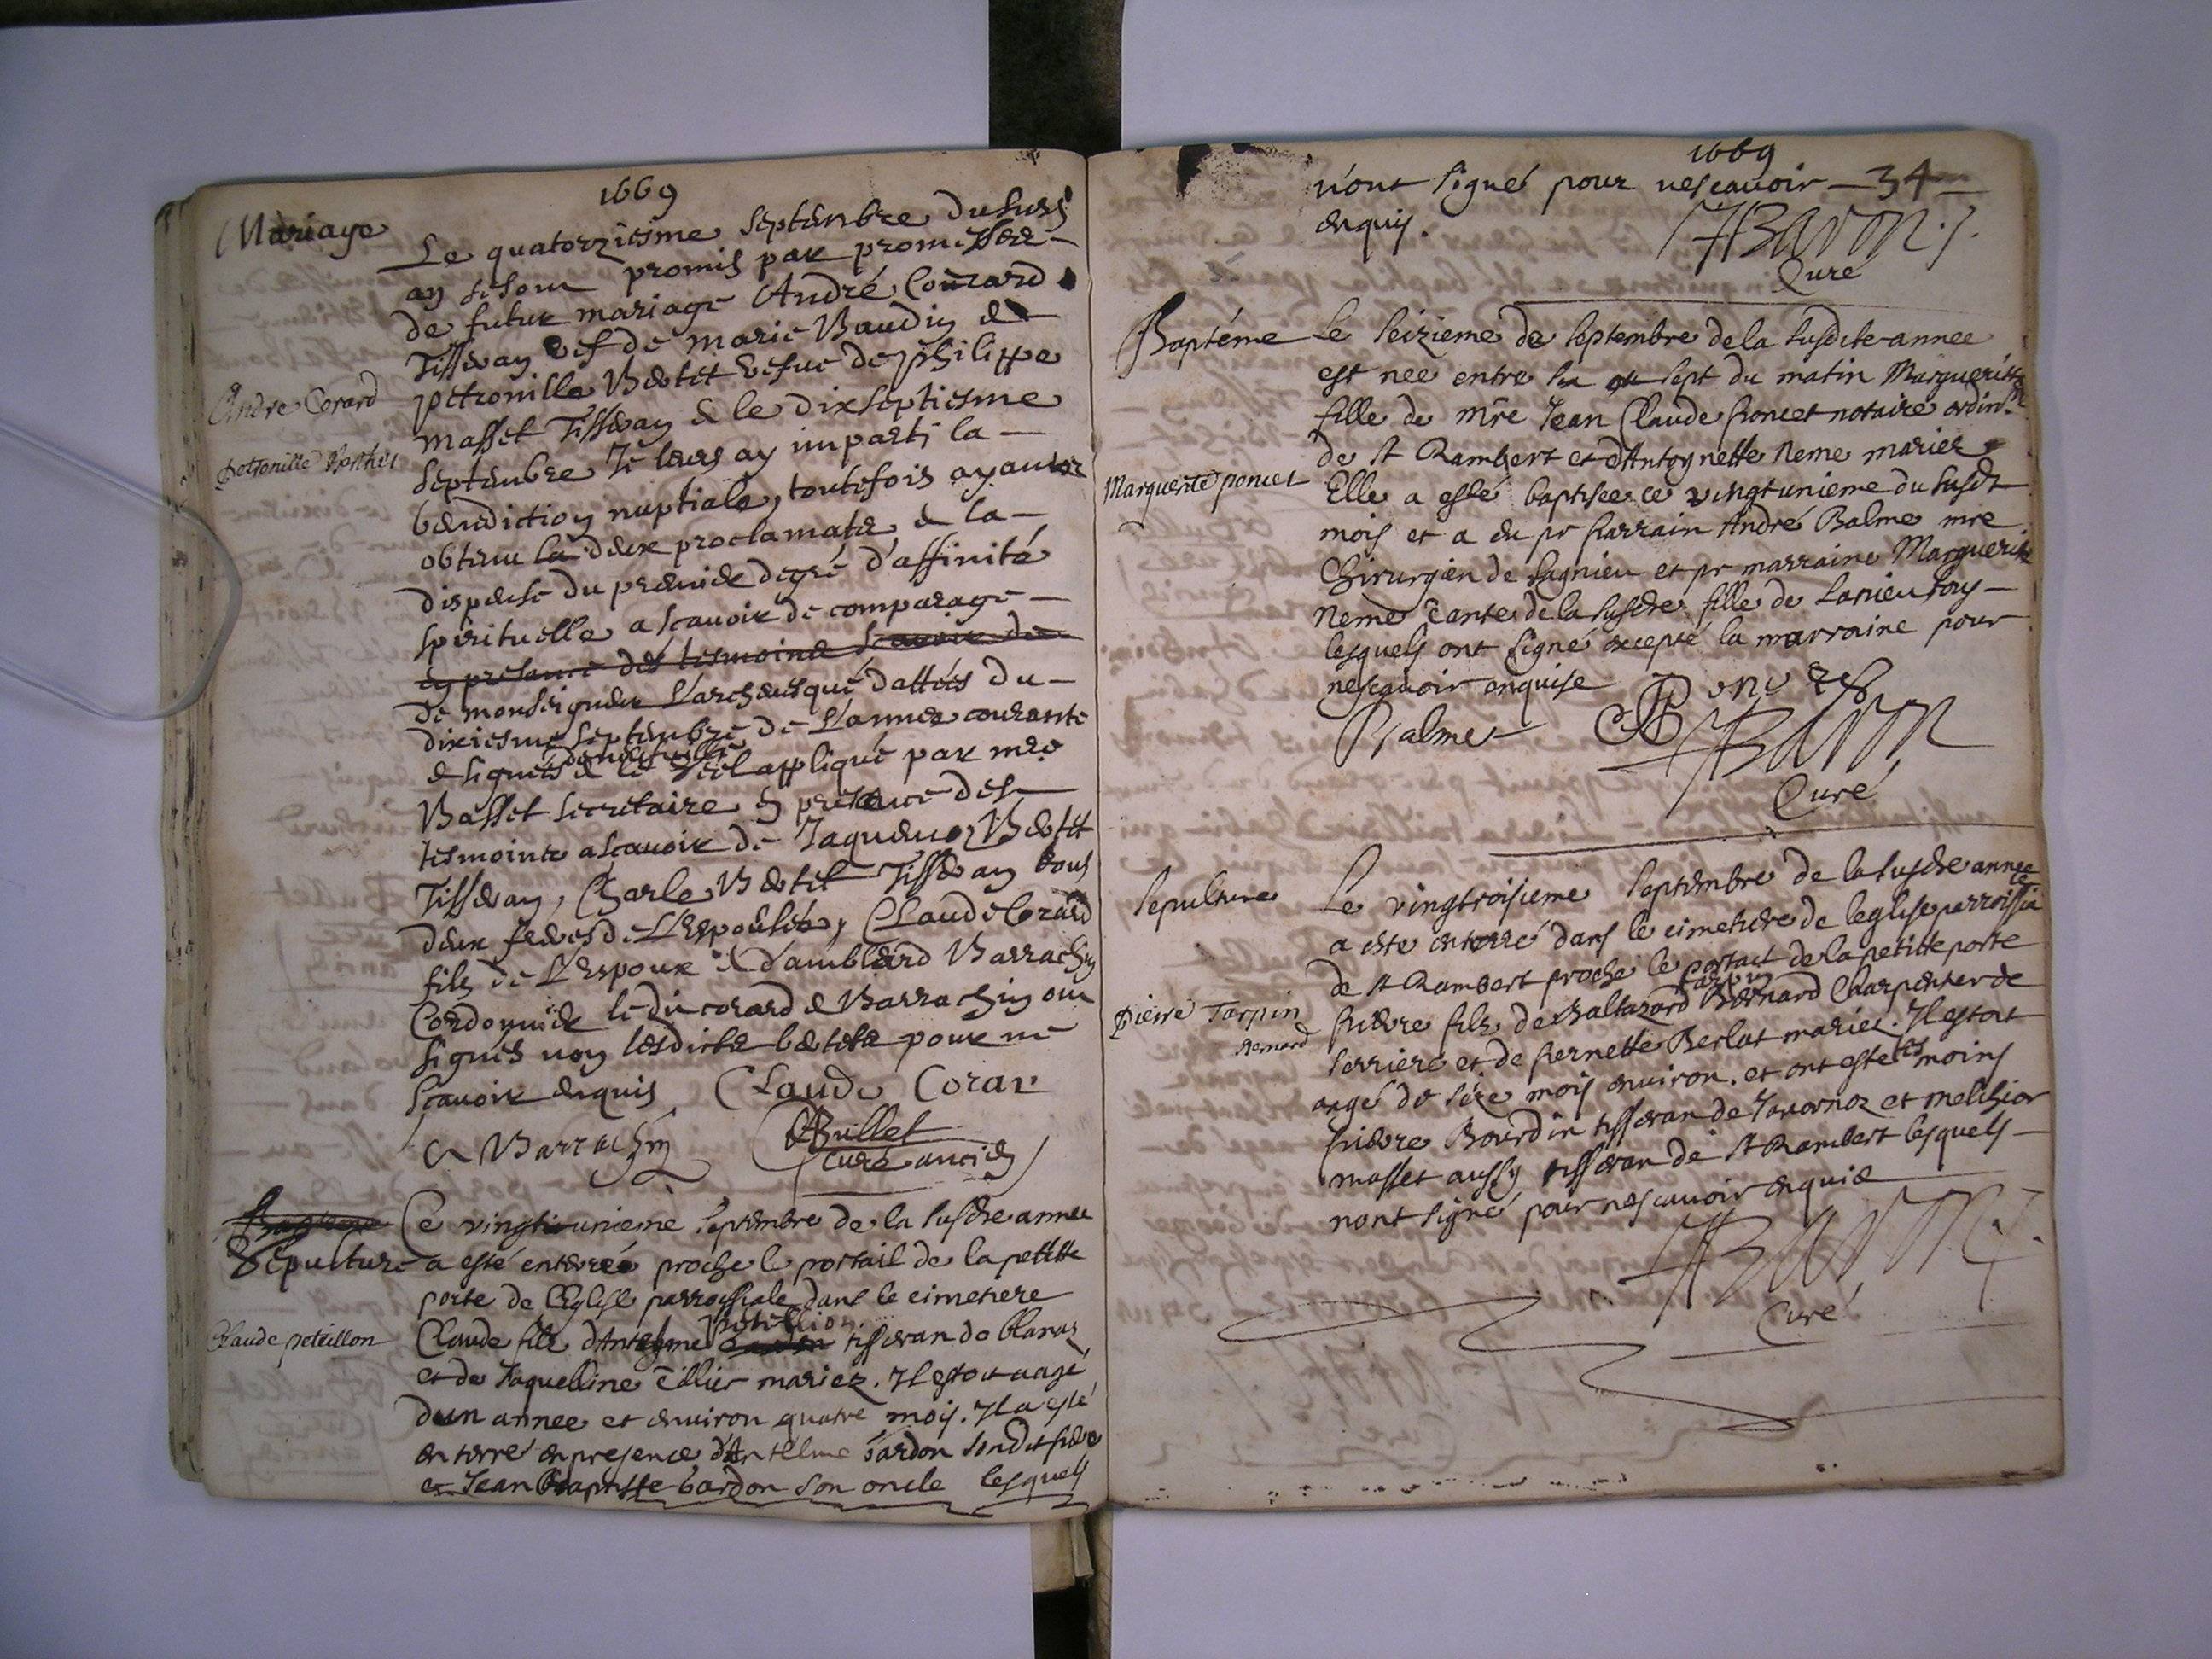 1669
Mariage
Le quatorziesme septembre du susd
ay se sont promis par promesse
de futur mariage André Conrard
Tisseran vef de marie Baudin &
petronille Bertet vefue de philippe
André Corard
masset Tisseran & le dixseptiesme
petronille Berthet
septembre Je leurs ay imparti la
benediction nuptiale, toutefois ayants
obtenu la deux proclamats & la
dispense du premier degré d'affinité
spirituelle a scauoir de comparage
en presence des tesmoins scauoir de
de monseigneur L'archeuesque dattées du
dixiesme septembre de L'annee courante
& signées & le seel appliqué par mre
Basset secretaire en presence des
tesmoins a scauoir de Jaquemoz Bertet
Tisseran, Charle Bertet Tisseran tous
deux freres de L'espousée, Claude Corard
fils de L'espoux & d'amblard Barrachin
Cordonnier ledit corard & Barrachin ont
signés non lesdicts bertets pour ne
scauoir enquis Claude Corar
A Barrachin Bullet
Curé ancien
Bapteme
Sepulture
Ce vingt unieme septembre de la susdte annee
a esté enterré proche le portail de la petitte
porte de l'Eglise parrossiale dans le cimetiere
petillion
Claude peteillon
Claude fils d'Antelme tisseran de blanas
et de Jaqueline Tillier mariez. Il estoit aagé
dun annee et enuiron quatre mois. Il a esté
enterré en presence d'Antelme bardon sondit frere
et Jean Baptiste bardon son oncle lesquels
1669
n'ont signé pour ne scauoir 34
enquis.
JBaron
Curé
Baptéme
Le seizieme de septembre de la susdite annee
est nee entre six ou sept du matin Marguerite
fille de mre Jean Claude poncet notaire ordinre
de st Rambert et d'Antoynette Neme mariez
Marguerite poncet
Elle a esté baptisee ce vingtunieme du susdt
mois et a eu pr parrain André Balme mre
Chirurgien de Lagnieu et pr marraine Marguerite
Neme tante de la susdte fille de Lanieu tous
lesquels ont signé excepté la marraine pour
ne scauoir enquise Poncet
Balme JBaron
Curé
Sepulture
Le vingtroisieme septembre de la susdte annee
a este enterré dans le cimetiere de leglise parroissia
le
de st Rambert proche le portail de la petitte porte
Tarpin
Pierre Tarpin
Bernard
pierre fils de Baltazard Bernard Charpentier de
serriere et de pernette Berlat mariez. Il estoit
aagé de seze mois enuiron. et ont este tesmoins
pierre Bourdin tisseran de Jauornoz et melchior
masset aussy tisseran de st Rambert lesquels
nont signé pour ne scauoir enquis
JBaron
Curé